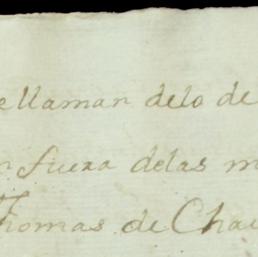 ellaman delo de
n fuera delas m
Thomas de Chav